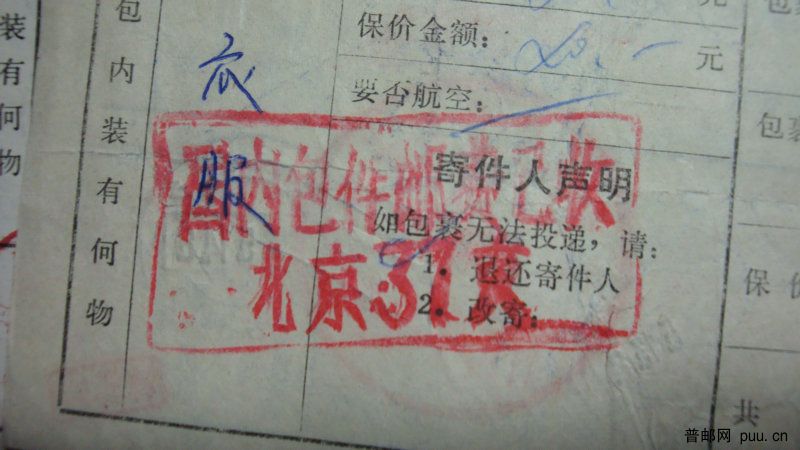 装有何物
包内装有何物
衣服
保价金额： 20.— 元
要否航空：
寄件人声明
如包裹无法投递，请：
1．退还寄件人
2．改寄：
包件邮 已收
北京37支
元
包
包裹
保价
共
普邮网 puu.cn